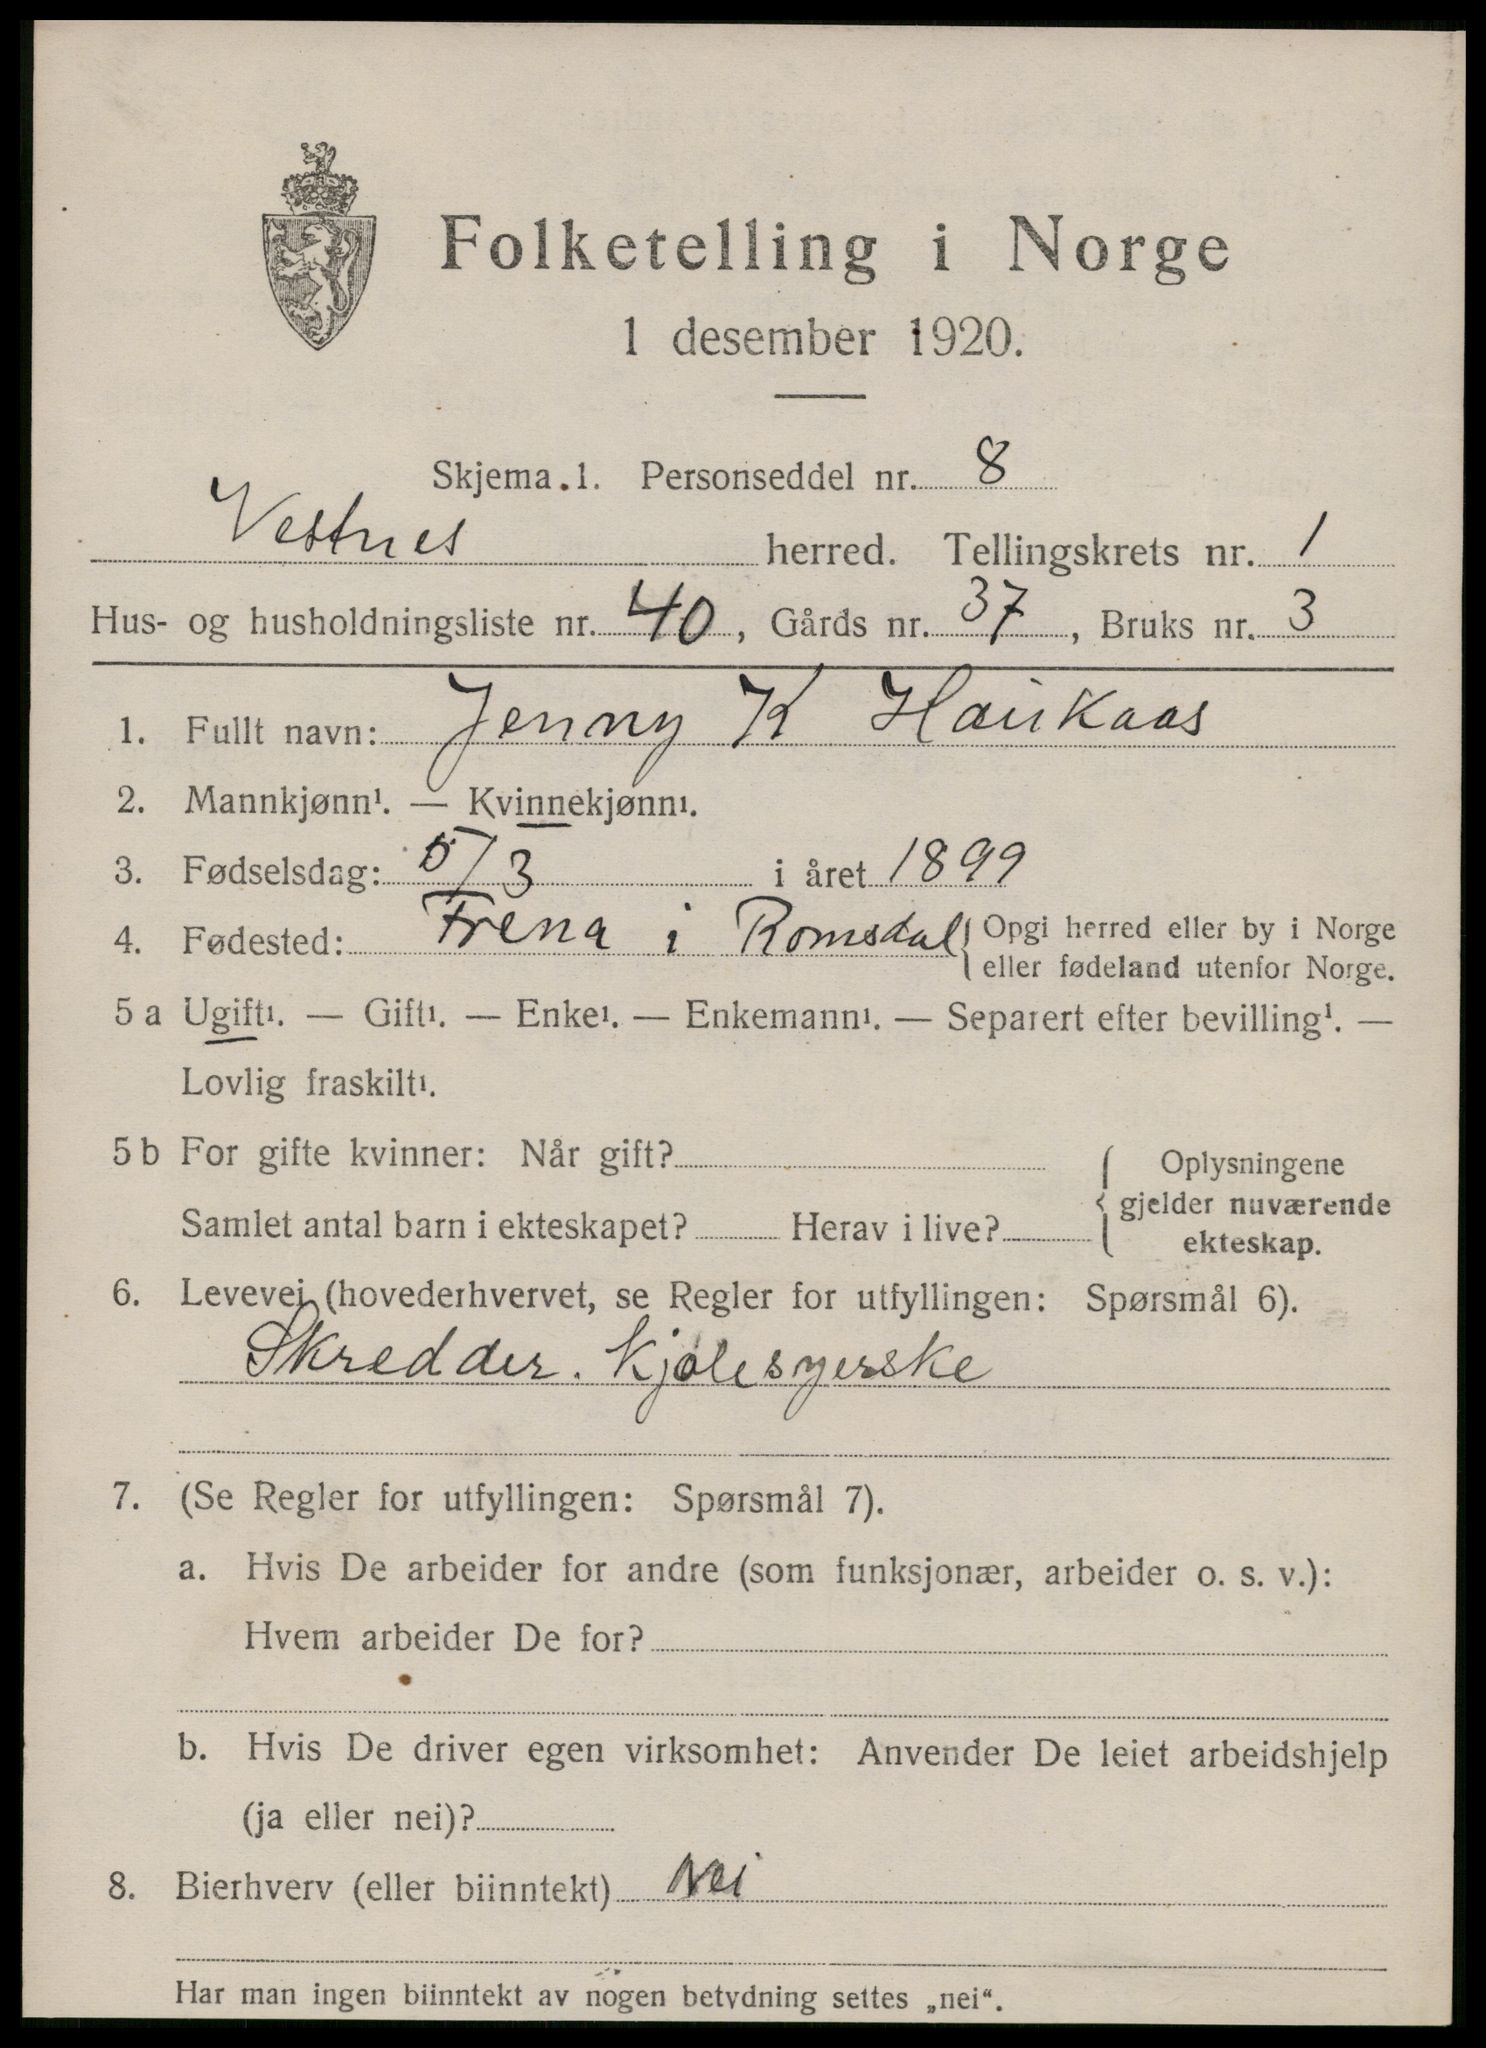 Folketelling i Norge
1 desember 1920.
Skjema 1. Personseddel nr. 8
Vestnes herred. Tellingskrets nr. 1
Hus- og husholdningsliste nr. 40, Gårds nr. 37, Bruks nr. 3
1. Fullt navn: Jenny K Haukaas
2. Mannkjønn¹. — Kvinnekjønn¹.
3. Fødselsdag: 5/3 i året 1899
4. Fødested: Frena i Romsdal { Opgi herred eller by i Norge
eller fødeland utenfor Norge.
5 a Ugift¹. — Gift¹. — Enke¹. — Enkemann¹. — Separert efter bevilling¹. —
Lovlig fraskilt¹.
5 b For gifte kvinner: Når gift?
Samlet antal barn i ekteskapet? Herav i live?
{ Oplysningene
gjelder nuværende
ekteskap.
6. Levevei (hovederhvervet, se Regler for utfyllingen: Spørsmål 6).
Skredder. Kjolesyerske
7. (Se Regler for utfyllingen: Spørsmål 7).
a. Hvis De arbeider for andre (som funksjonær, arbeider o. s. v.):
Hvem arbeider De for?
b. Hvis De driver egen virksomhet: Anvender De leiet arbeidshjelp
(ja eller nei)?
8. Bierhverv (eller biinntekt) Nei
Har man ingen biinntekt av nogen betydning settes „nei“.